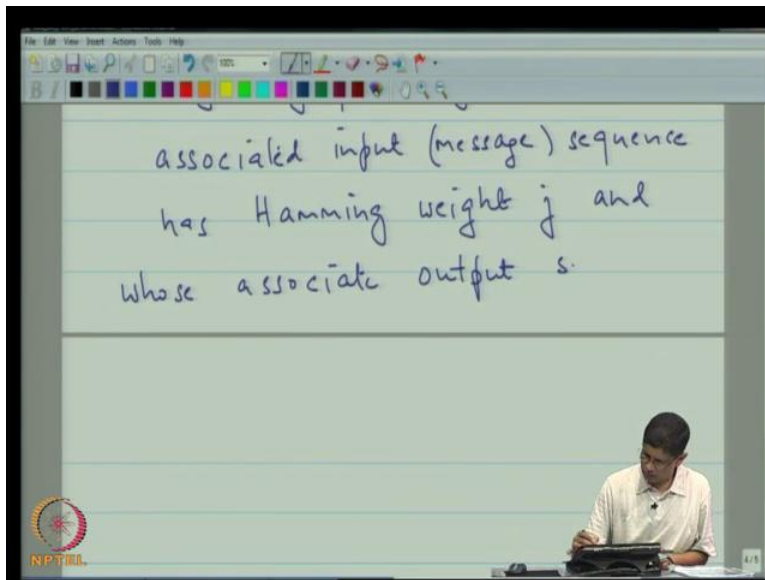 File Edit View Insert Actions Tools Help
100%
B I
associated input (message) sequence
has Hamming weight j and
whose associate output s
NPTEL
4/5